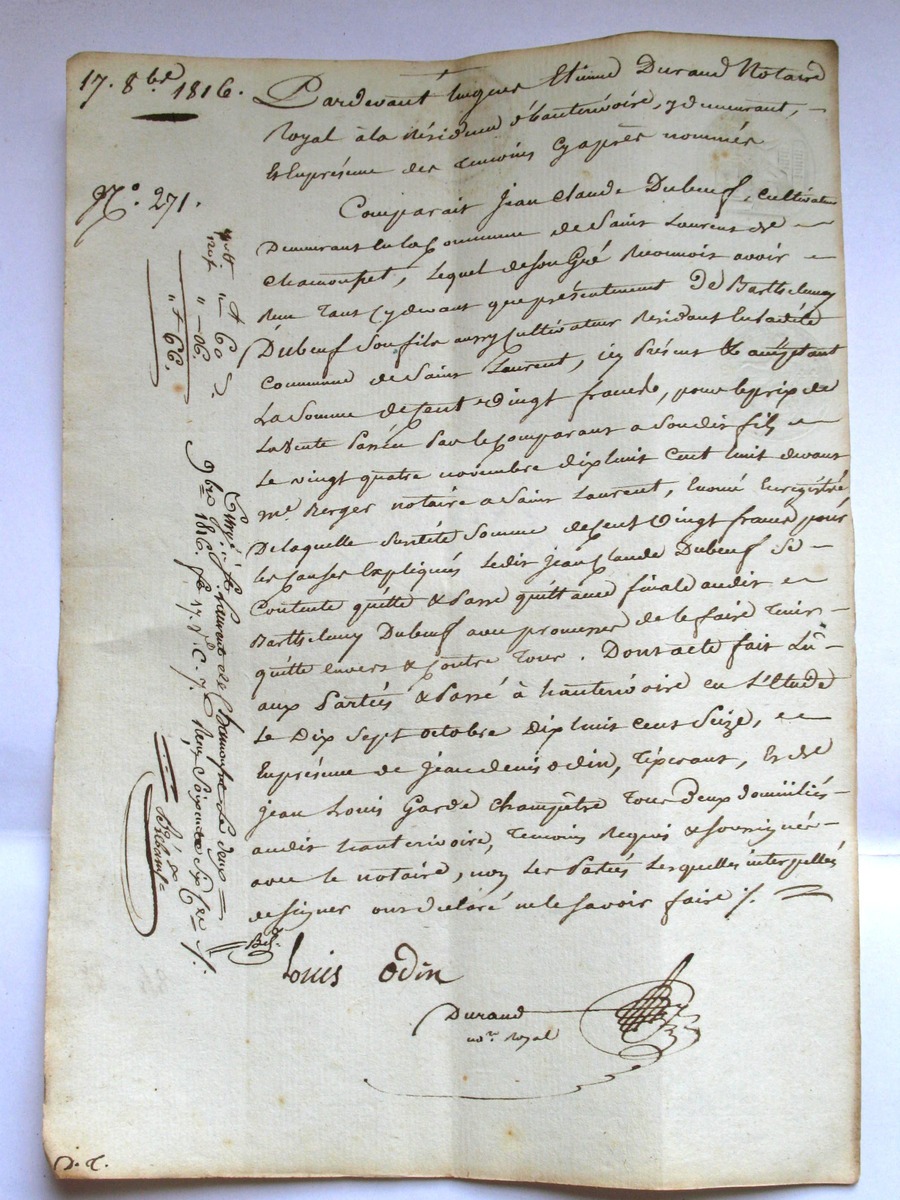 17. 8bre 1816.
Pardevant hugues Etienne Durand Notaire
Royal à la Résidence d'hauterivoire, y demeurant,
Et En présence des temoins Cy après nommés
N.o 271.
Comparait Jean Claude Dubeuf, cultivateur
Demeurant En la Commune de Saint Laurent de
Chamousset, lequel de son Gré Reconnoit avoir
Recu tant Cy devant que présentement De Barthelemy
Dubeuf son fils aussy Cultivateur Résidant En ladite
Commune de Saint Laurent, icy Présent & acceptant
La Somme de Cent Vingt francs, pour le prix de
La Vente Passée Par le Comparant a Son dit fils
Le vingt quatre novembre dix huit Cent huit devant
me. Berger notaire a Saint Laurent, Enregistré
De laquelle Susdite Somme de Cent Vingt francs pour
les Causes Expliquées ledit Jean Claude Dubeuf Se
Contente quitte & Passe quittance finale audit
Barthelemy Dubeuf avec promesse de le faire Tenir
quitte envers & Contre Tous. Dont acte fait Lû
aux Parties & Passé à hauterivoire En L'Etude
Le Dix Sept octobre Dix huit cent Seize,
En présence de Jean denis odin, Tisserant, Et de
Jean Louis Garde Champêtre Tous Deux domiciliés
audit hauterivoire, Temoins Requis & Soussignés
avec le notaire, non Les Parties Lesquelles interpellées
de signer ont declaré ne le Savoir faire ./.
Louis odin
Durand
nore. Royal
60
06.
66.
Enrgé. a St. Laurent de Chamousset le deux
9bre 1816. fo 17. Vo C. 7. Reçu Soixante Six Cmes ./.
D. T.